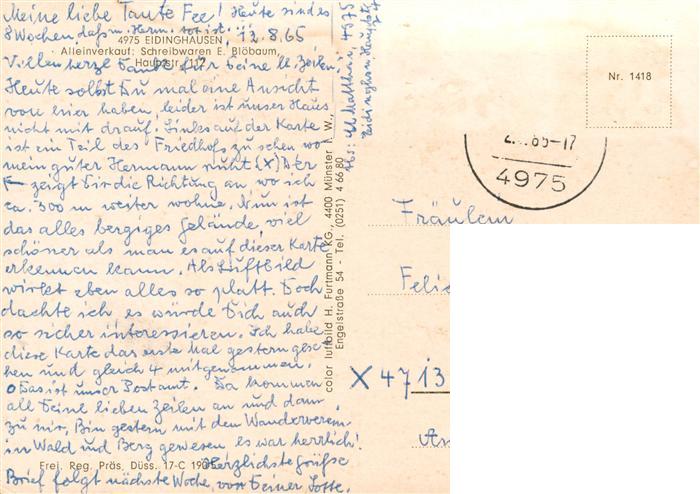 Meine liebe Tante Fee! Heute sind es
8 Wochen, daß m. Herm. tot ist. 12.8.65
4975 EIDINGHAUSEN
Alleinverkauf: Schreibwaren E. Blöbaum,
Hauptstr. 117
Vielen herzl. Dank für Deine lb. Zeilen.
Heute sollst Du mal eine Ansicht
von hier haben, leider ist unser Haus
nicht mit drauf. Links auf der Karte
ist ein Teil des Friedhofs zu sehen wo
mein guter Hermann ruht (X) Der
← zeigt Dir die Richtung an, wo ich
ca. 300 m weiter wohne. Nun ist
das alles bergiges Gelände, viel
schöner als man es auf dieser Karte
erkennen kann. Als Luftbild
wirkt eben alles so platt. Doch
dachte ich es würde Dich auch
so sicher interessieren. Ich habe
diese Karte das erste Mal gestern gese-
hen und gleich 4 mitgenommen.
o Das ist unser Postamt. Da kommen
all Deine lieben Zeilen an und dann
zu mir. Bin gestern mit den Wanderverein
in Wald und Berg gewesen es war herrlich!
Frei. Reg. Präs. Düss. 17-C 19
Herzlichste Grüße
Brief folgt nächste Woche, von Deiner Lotte.
color luftbild H. Furtmann KG., 4400 Münster i. W.,
Engelstraße 54 - Tel. (0251) 4 66 80
Abs: 4975
Eidinghausen, Hauptstr.
Nr. 1418
65-17
4975
Fräulein
X 4713